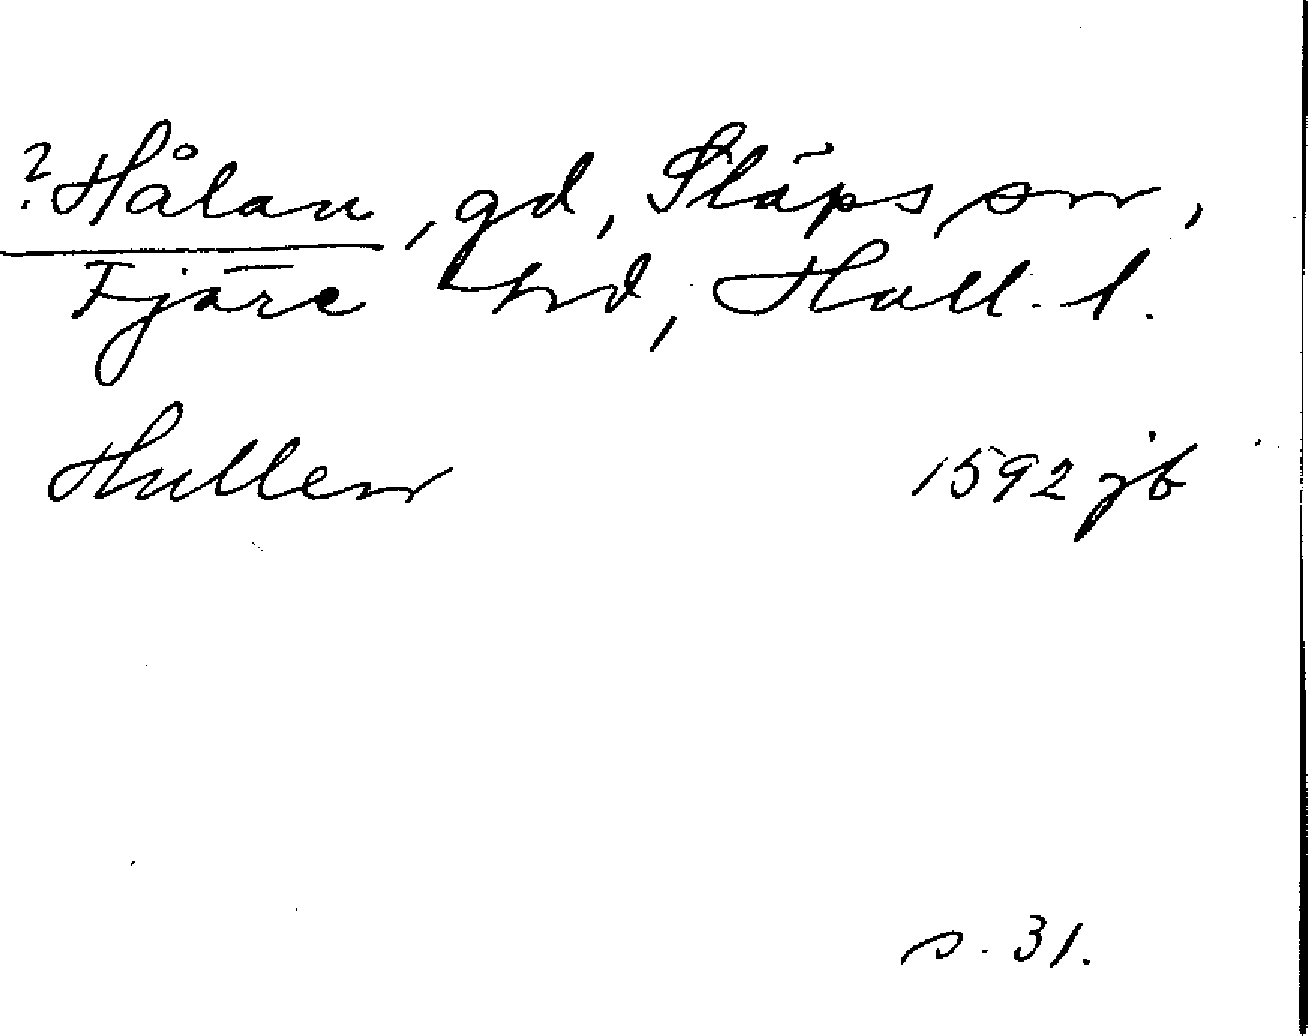 ? Hålan, gd, Släps sn,
Fjäre hd, Hall. l.
Hullen 1592 jb
s. 31.